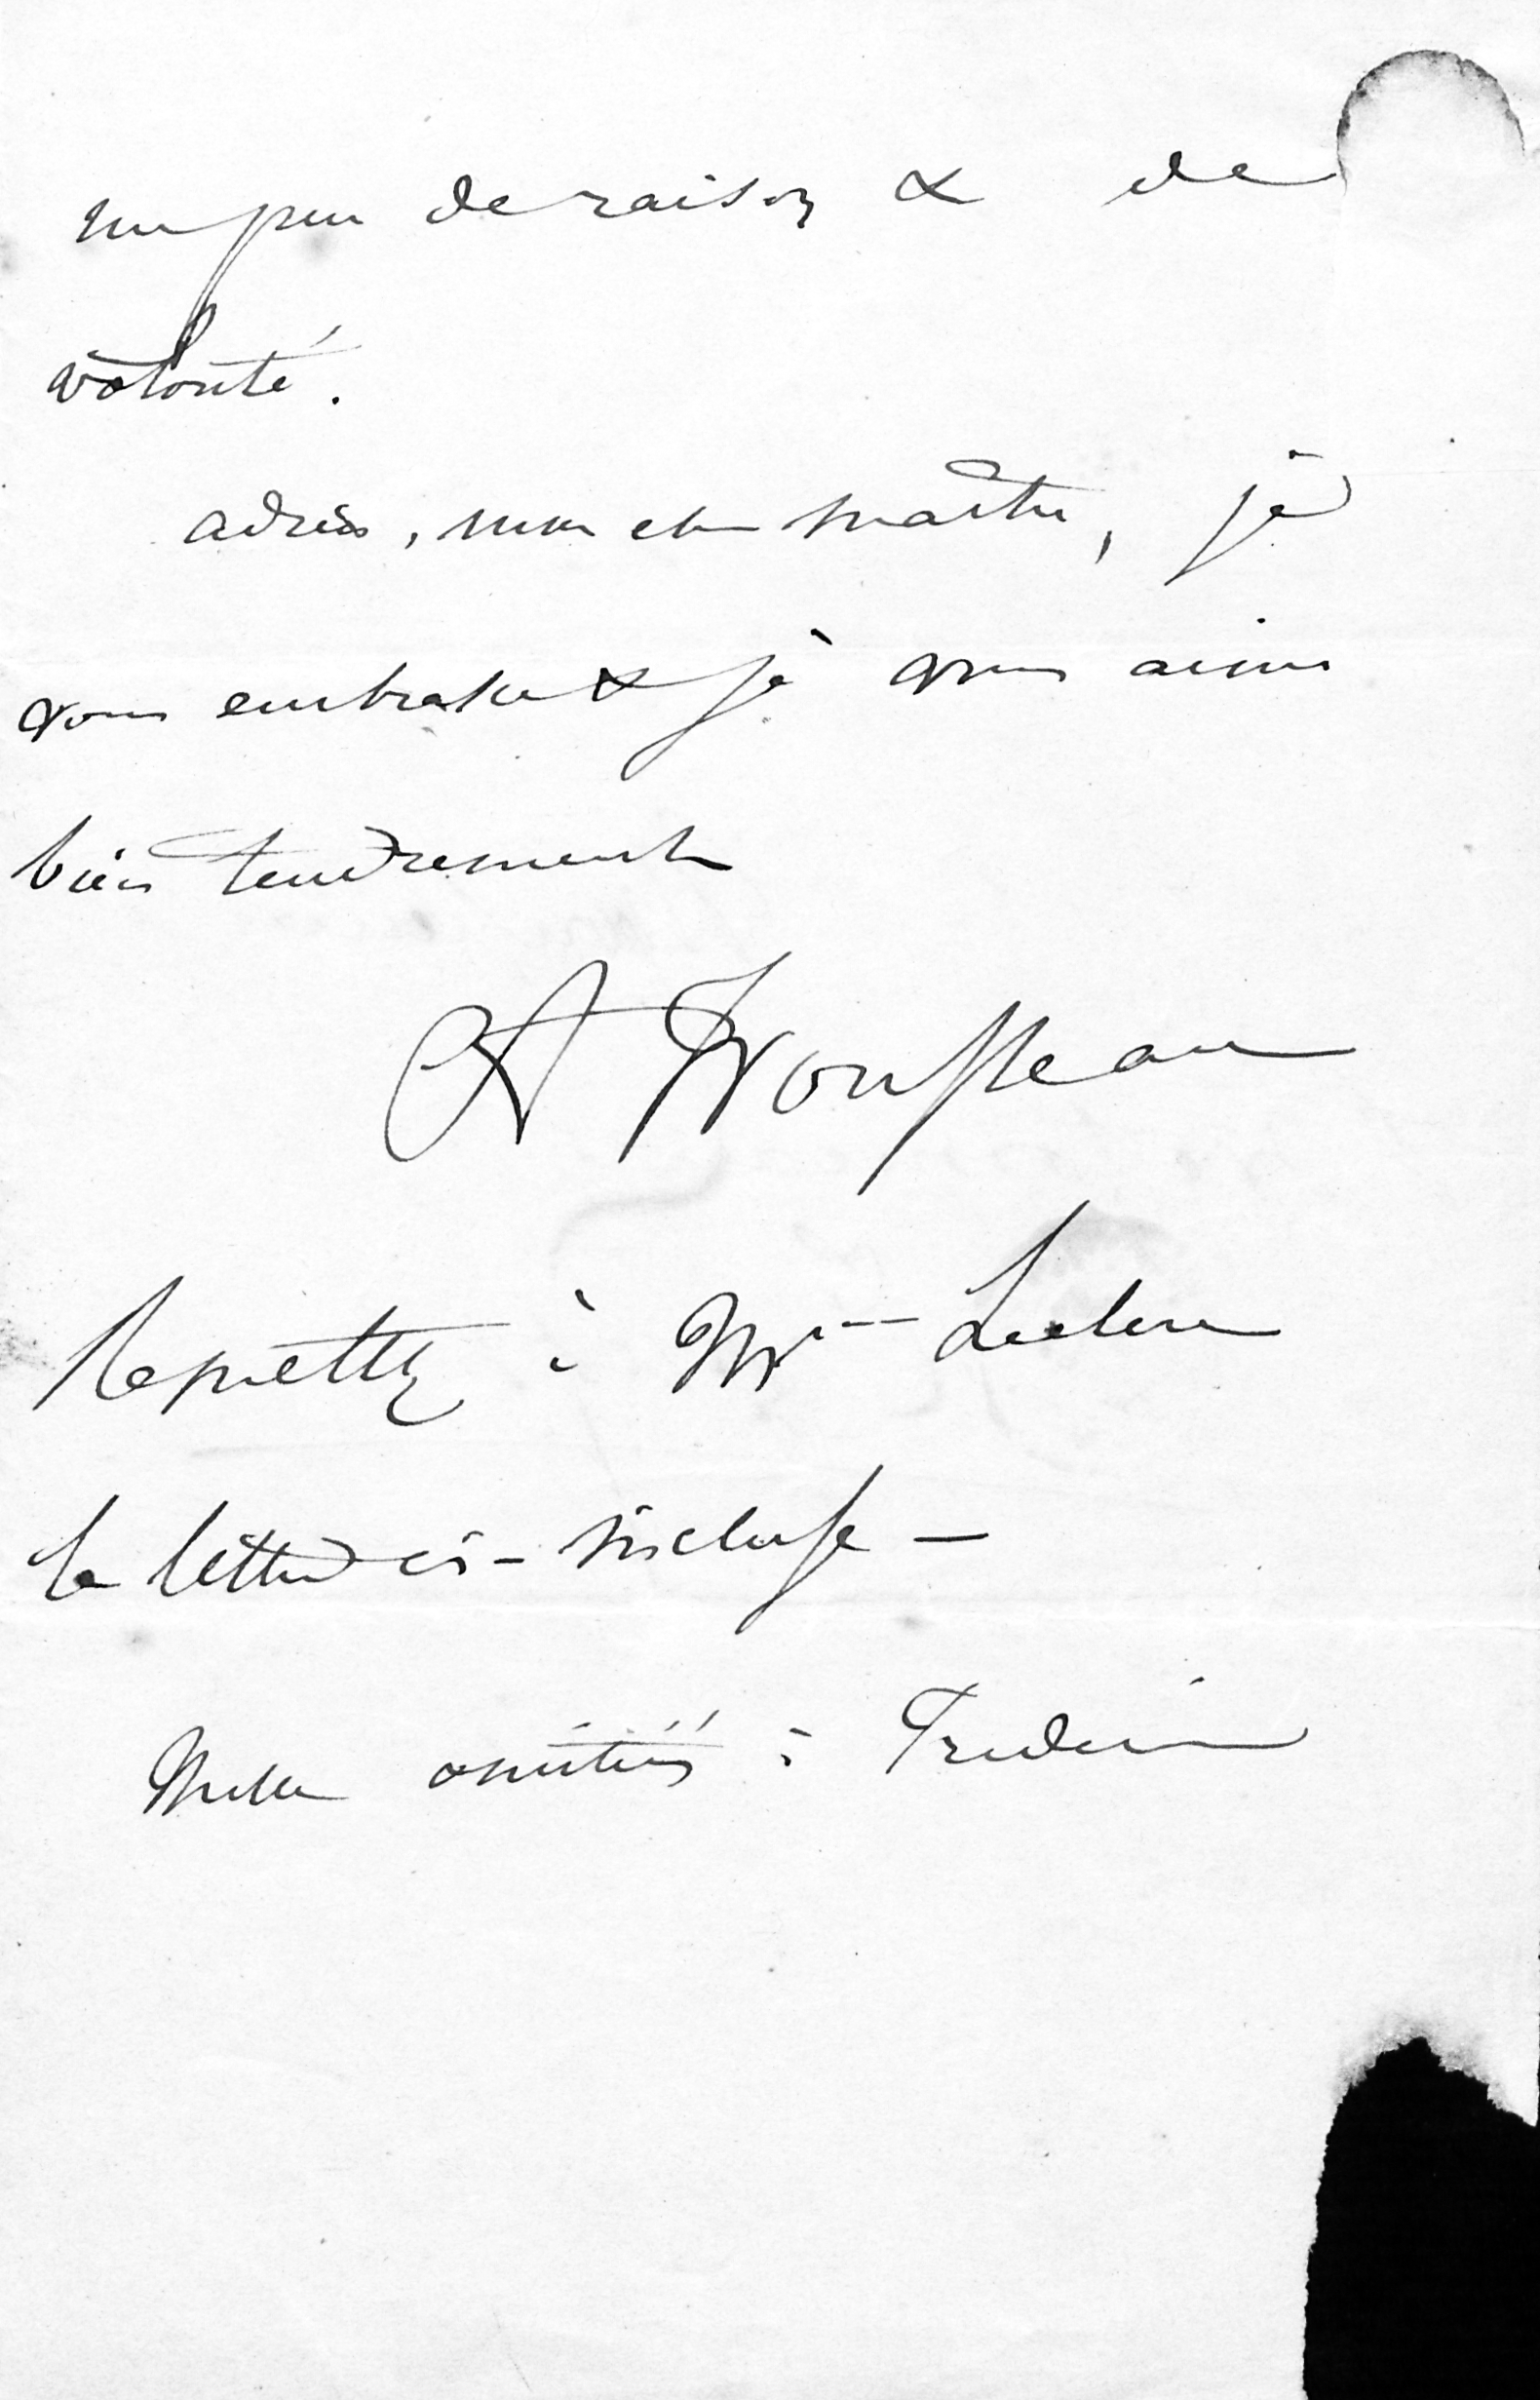 un peu de raison & de
volonté.
adieu, mon cher maître, je
vous embrasse & je vous aime
bien tendrement
A Trousseau
Remettez à Mme Leclerc
la lettre ci-incluse —
Mille amitiés à